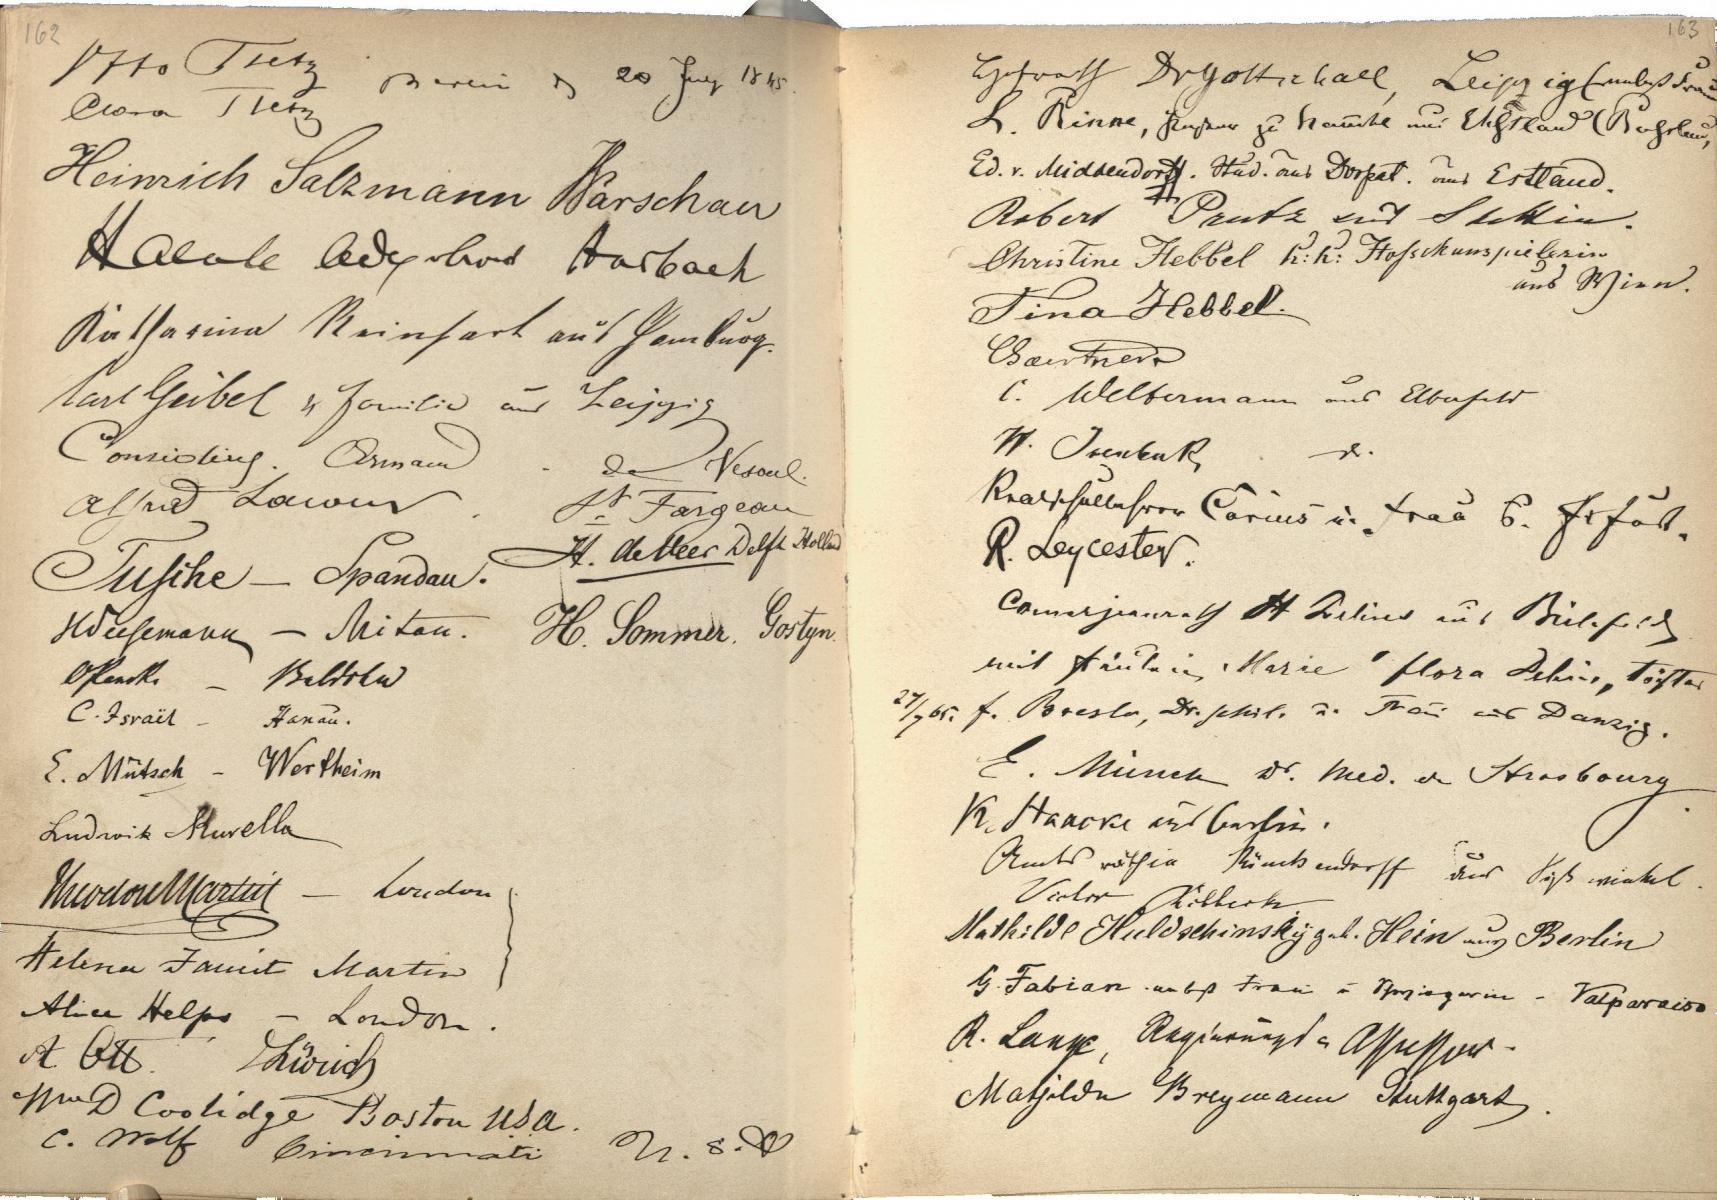 162
Otto Tietz Berlin d 20 July 1865.
Clara Tietz
Heinrich Salzmann Warschau
Harbach
Katharina Reinhart aus Hamburg.
Carl Geibel & Familie aus Leipzig
Armand de Vesoul.
Alfred St Fargeau
H. de Veer Delft Holland
Tusche – Spandau.
– Mitau. H. Sommer. Gostyn.
C. Israël – Hanau.
E. Mütsch – Wertheim
Ludwik Murella
Theodore Martin – London
Helena Faucit Martin
Alice Helps – London.
A Ott. Zürich
Wm D Coolidge Boston USA.
C. Wolf Cincinnati U. S. A
163
Hofrath Dr Gottschall, Leipzig (nebst Frau
L. Rinne, aus Ehstland (Rußland,
Ed. v. Middendorff. Stud. aus Dorpat. aus Estland.
Robert Prutz aus Stettin.
Christine Hebbel k: k: Hofschauspielerin
aus Wien.
Tina Hebbel.
Gaertner
C. Weltermann aus Elberfeld
W. Isenbeck do.
Realschullehrer Carius u. Frau a. Erfurt.
R. Leycester.
Commerzienrath H Delius aus Bielefeld
mit Fräulein Marie & Flora Delius, Töchter
27/7 65. F. Dr. phil. u. Frau aus Danzig.
E. Münch Dr. med. de Strasbourg
K. Haacke aus Berlin.
Amtsräthin aus
Victor
Mathilde Huldschinsky geb. Hein aus Berlin
G. Fabian nebst Frau u – Valparaiso
R. Lange, Regierungs Assessor.
Mathilde Breymann Stuttgart.